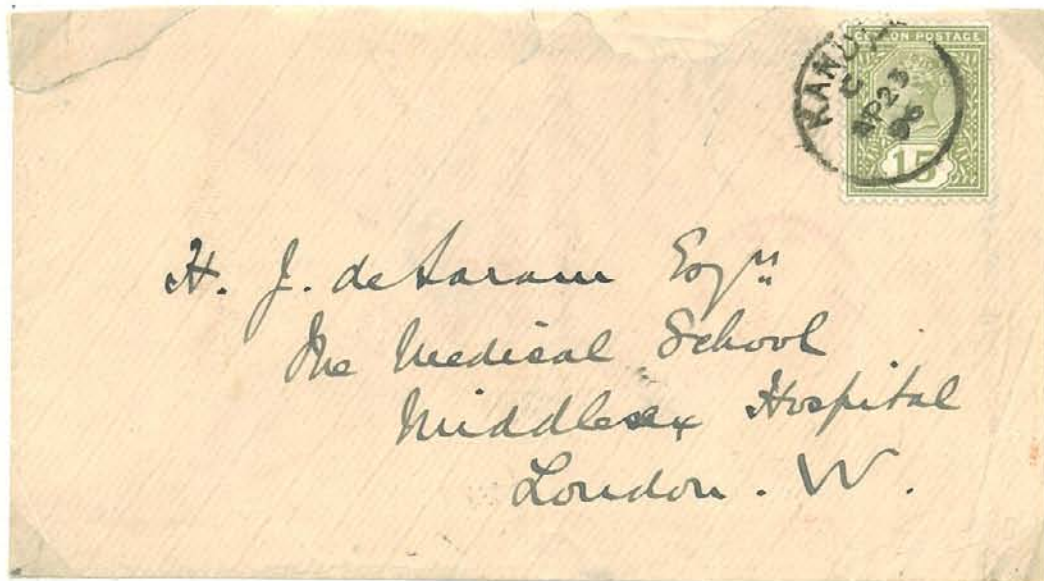 CEYLON POSTAGE
KANDY
C
AP 23
96
15
H. J. de Saram Esqr
The Medical School
Middlesex Hospital
London. W.